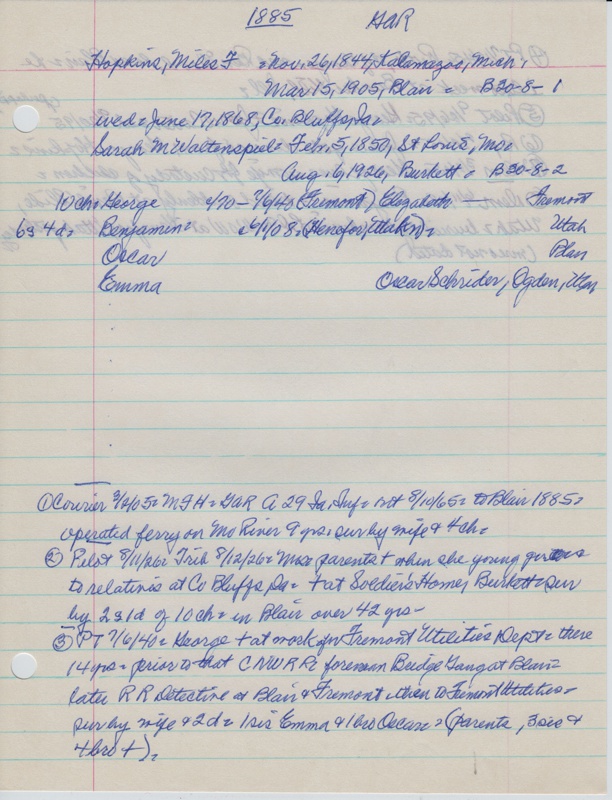 1885 GAR
Hopkins, Miles F = Nov. 26, 1844, Kalamazoo, Mich,
Mar. 15, 1905, Blair = B30-8-1
wed = June 17, 1868, Co. Bluffs, Ia.
Sarah M = Feb. 5, 1850, St Louis, Mo.
Aug. 1926, Burkett = B30-8-2
10 ch = George 7/6/40 (Fremont) Elizabeth — Fremont
6s 4d = Benjamin = (Henefer, Utah) = Utah
Oscar Blair
Emma Oscar Schrider, Ogden, Utah
① Courier 3/ /05 = MFH = GAR A 29 Ia. Inf = 8/10/65 = to Blair 1885 =
operated ferry on Mo River 9 yrs = sur by wife & 4 ch =
② Pilot 8/11/26 = Trib 8/12/26 = parents + when she young
to relatives at Co Bluffs, Ia = + at Soldier's Home, Burkett = sur
by 2s 1d of 10 ch = in Blair over 42 yrs -
③ PT 7/6/40 = George + at work for Fremont Utilities Dept = there
14 yrs = prior to that CNWRR foreman Bridge Gang at Blair =
later RR Detective at Blair & Fremont then to Fremont Utilities =
sur by wife & 2d = 1 sis Emma & 1 bro Oscar = (parents, 3 sis &
4 bro +) =